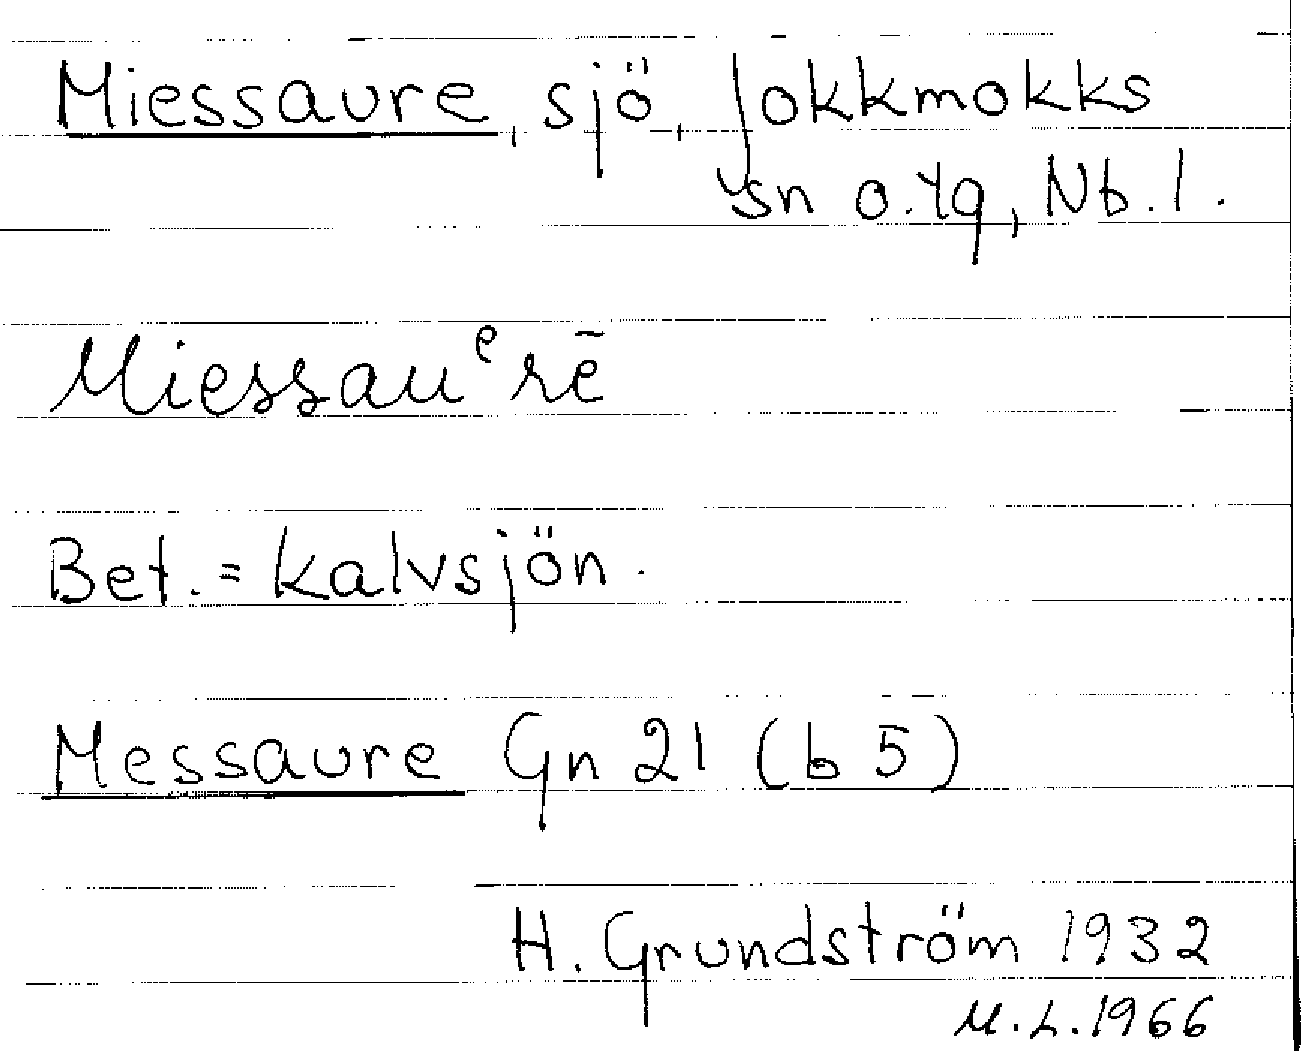 Miessaure, sjö, Jokkmokks
sn o. tg, Nb. l.
Miessauᵉrē
Bet. = kalvsjön.
Messaure Gn 21 (b 5)
H. Grundström 1932
M. L. 1966